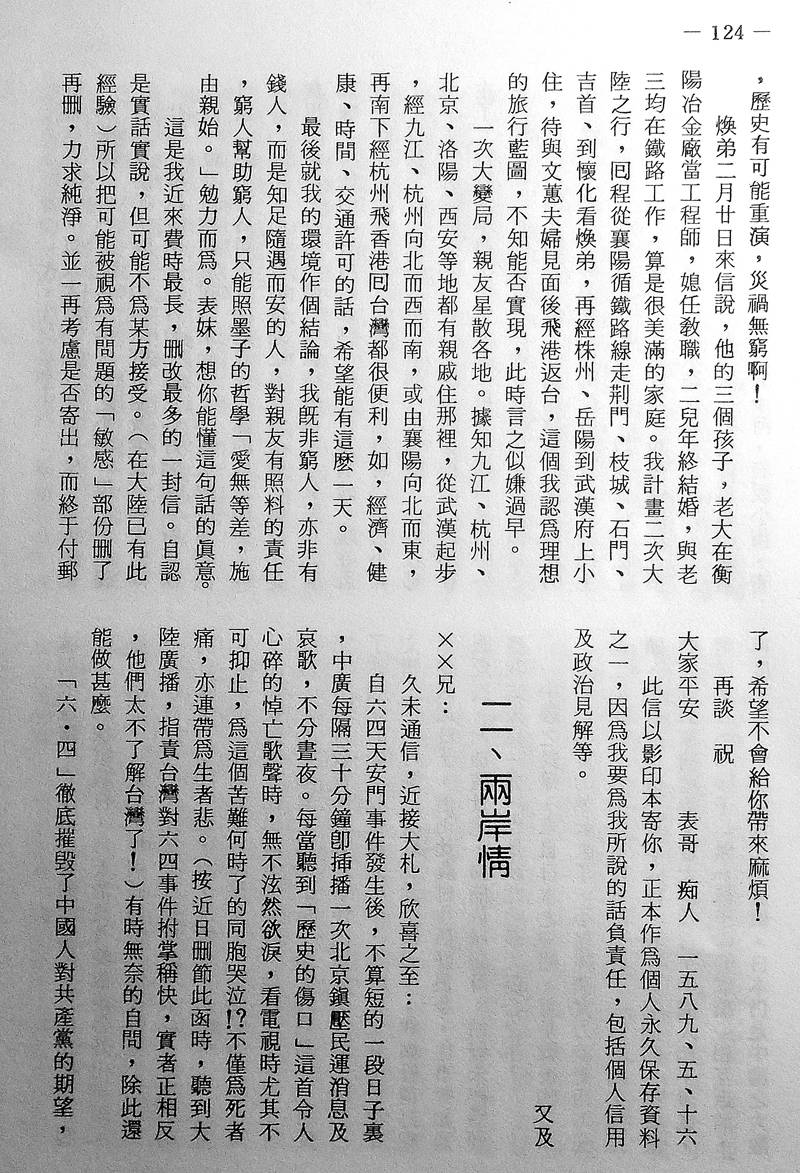 — 124 —
，歷史有可能重演，災禍無窮啊！
煥弟二月廿日來信說，他的三個孩子，老大在衡
陽冶金廠當工程師，媳任教職，二兒年終結婚，與老
三均在鐵路工作，算是很美滿的家庭。我計畫二次大
陸之行，囘程從襄陽循鐵路線走荆門、枝城、石門、
吉首、到懷化看煥弟，再經株州、岳陽到武漢府上小
住，待與文蕙夫婦見面後飛港返台，這個我認爲理想
的旅行藍圖，不知能否實現，此時言之似嫌過早。
一次大變局，親友星散各地。據知九江、杭州、
北京、洛陽、西安等地都有親戚住那裡，從武漢起步
，經九江、杭州向北而西而南，或由襄陽向北而東，
再南下經杭州飛香港囘台灣都很便利，如，經濟、健
康、時間、交通許可的話，希望能有這麽一天。
最後就我的環境作個結論，我旣非窮人，亦非有
錢人，而是知足隨遇而安的人，對親友有照料的責任
，窮人幫助窮人，只能照墨子的哲學「愛無等差，施
由親始。」勉力而爲。表妹，想你能懂這句話的眞意。
這是我近來費時最長，刪改最多的一封信。自認
是實話實說，但可能不爲某方接受。（在大陸已有此
經驗）所以把可能被視爲有問題的「敏感」部份刪了
再刪，力求純淨。並一再考慮是否寄出，而終于付郵
了，希望不會給你帶來麻煩！
再談　祝
大家平安　　　表哥　痴人　一五八九、五、十六
此信以影印本寄你，正本作爲個人永久保存資料
之一，因爲我要爲我所說的話負責任，包括個人信用
及政治見解等。
又及
二、兩岸情
××兄：
久未通信，近接大札，欣喜之至：
自六四天安門事件發生後，不算短的一段日子裏
，中廣每隔三十分鐘卽挿播一次北京鎭壓民運消息及
哀歌，不分晝夜。每當聽到「歷史的傷口」這首令人
心碎的悼亡歌聲時，無不泫然欲淚，看電視時尤其不
可抑止，爲這個苦難何時了的同胞哭泣！？不僅爲死者
痛，亦連帶爲生者悲。（按近日刪節此函時，聽到大
陸廣播，指責台灣對六四事件拊掌稱快，實者正相反
，他們太不了解台灣了！）有時無奈的自問，除此還
能做甚麼。
「六・四」徹底摧毀了中國人對共產黨的期望，